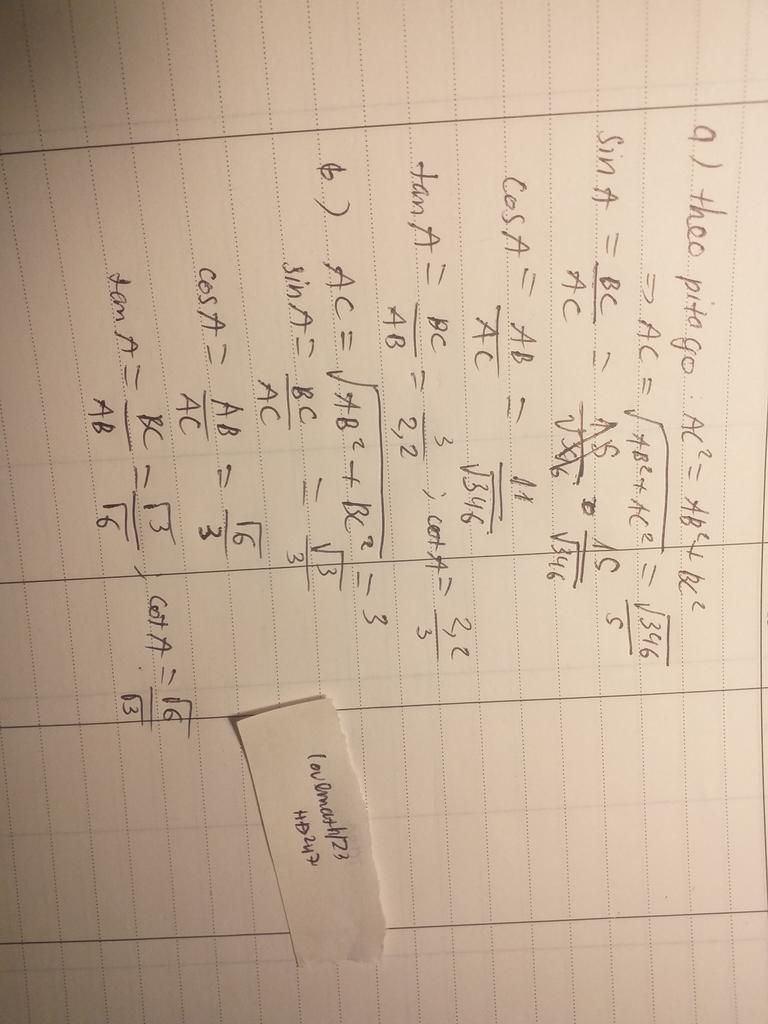 a) theo pitago: AC² = AB² + BC²
=> AC = √(AB² + AC²) = √346/5
sin A = BC/AC = 15/√346
cos A = AB/AC = 11/√346
tan A = BC/AB = 3/2,2 ; cot A = 2,2/3
b.) AC = √(AB² + BC²) = 3
sin A = BC/AC = √3/3
cos A = AB/AC = √6/3
tan A = BC/AB = √3/√6 ; cot A = √6/√3
lovemath123
HĐ247